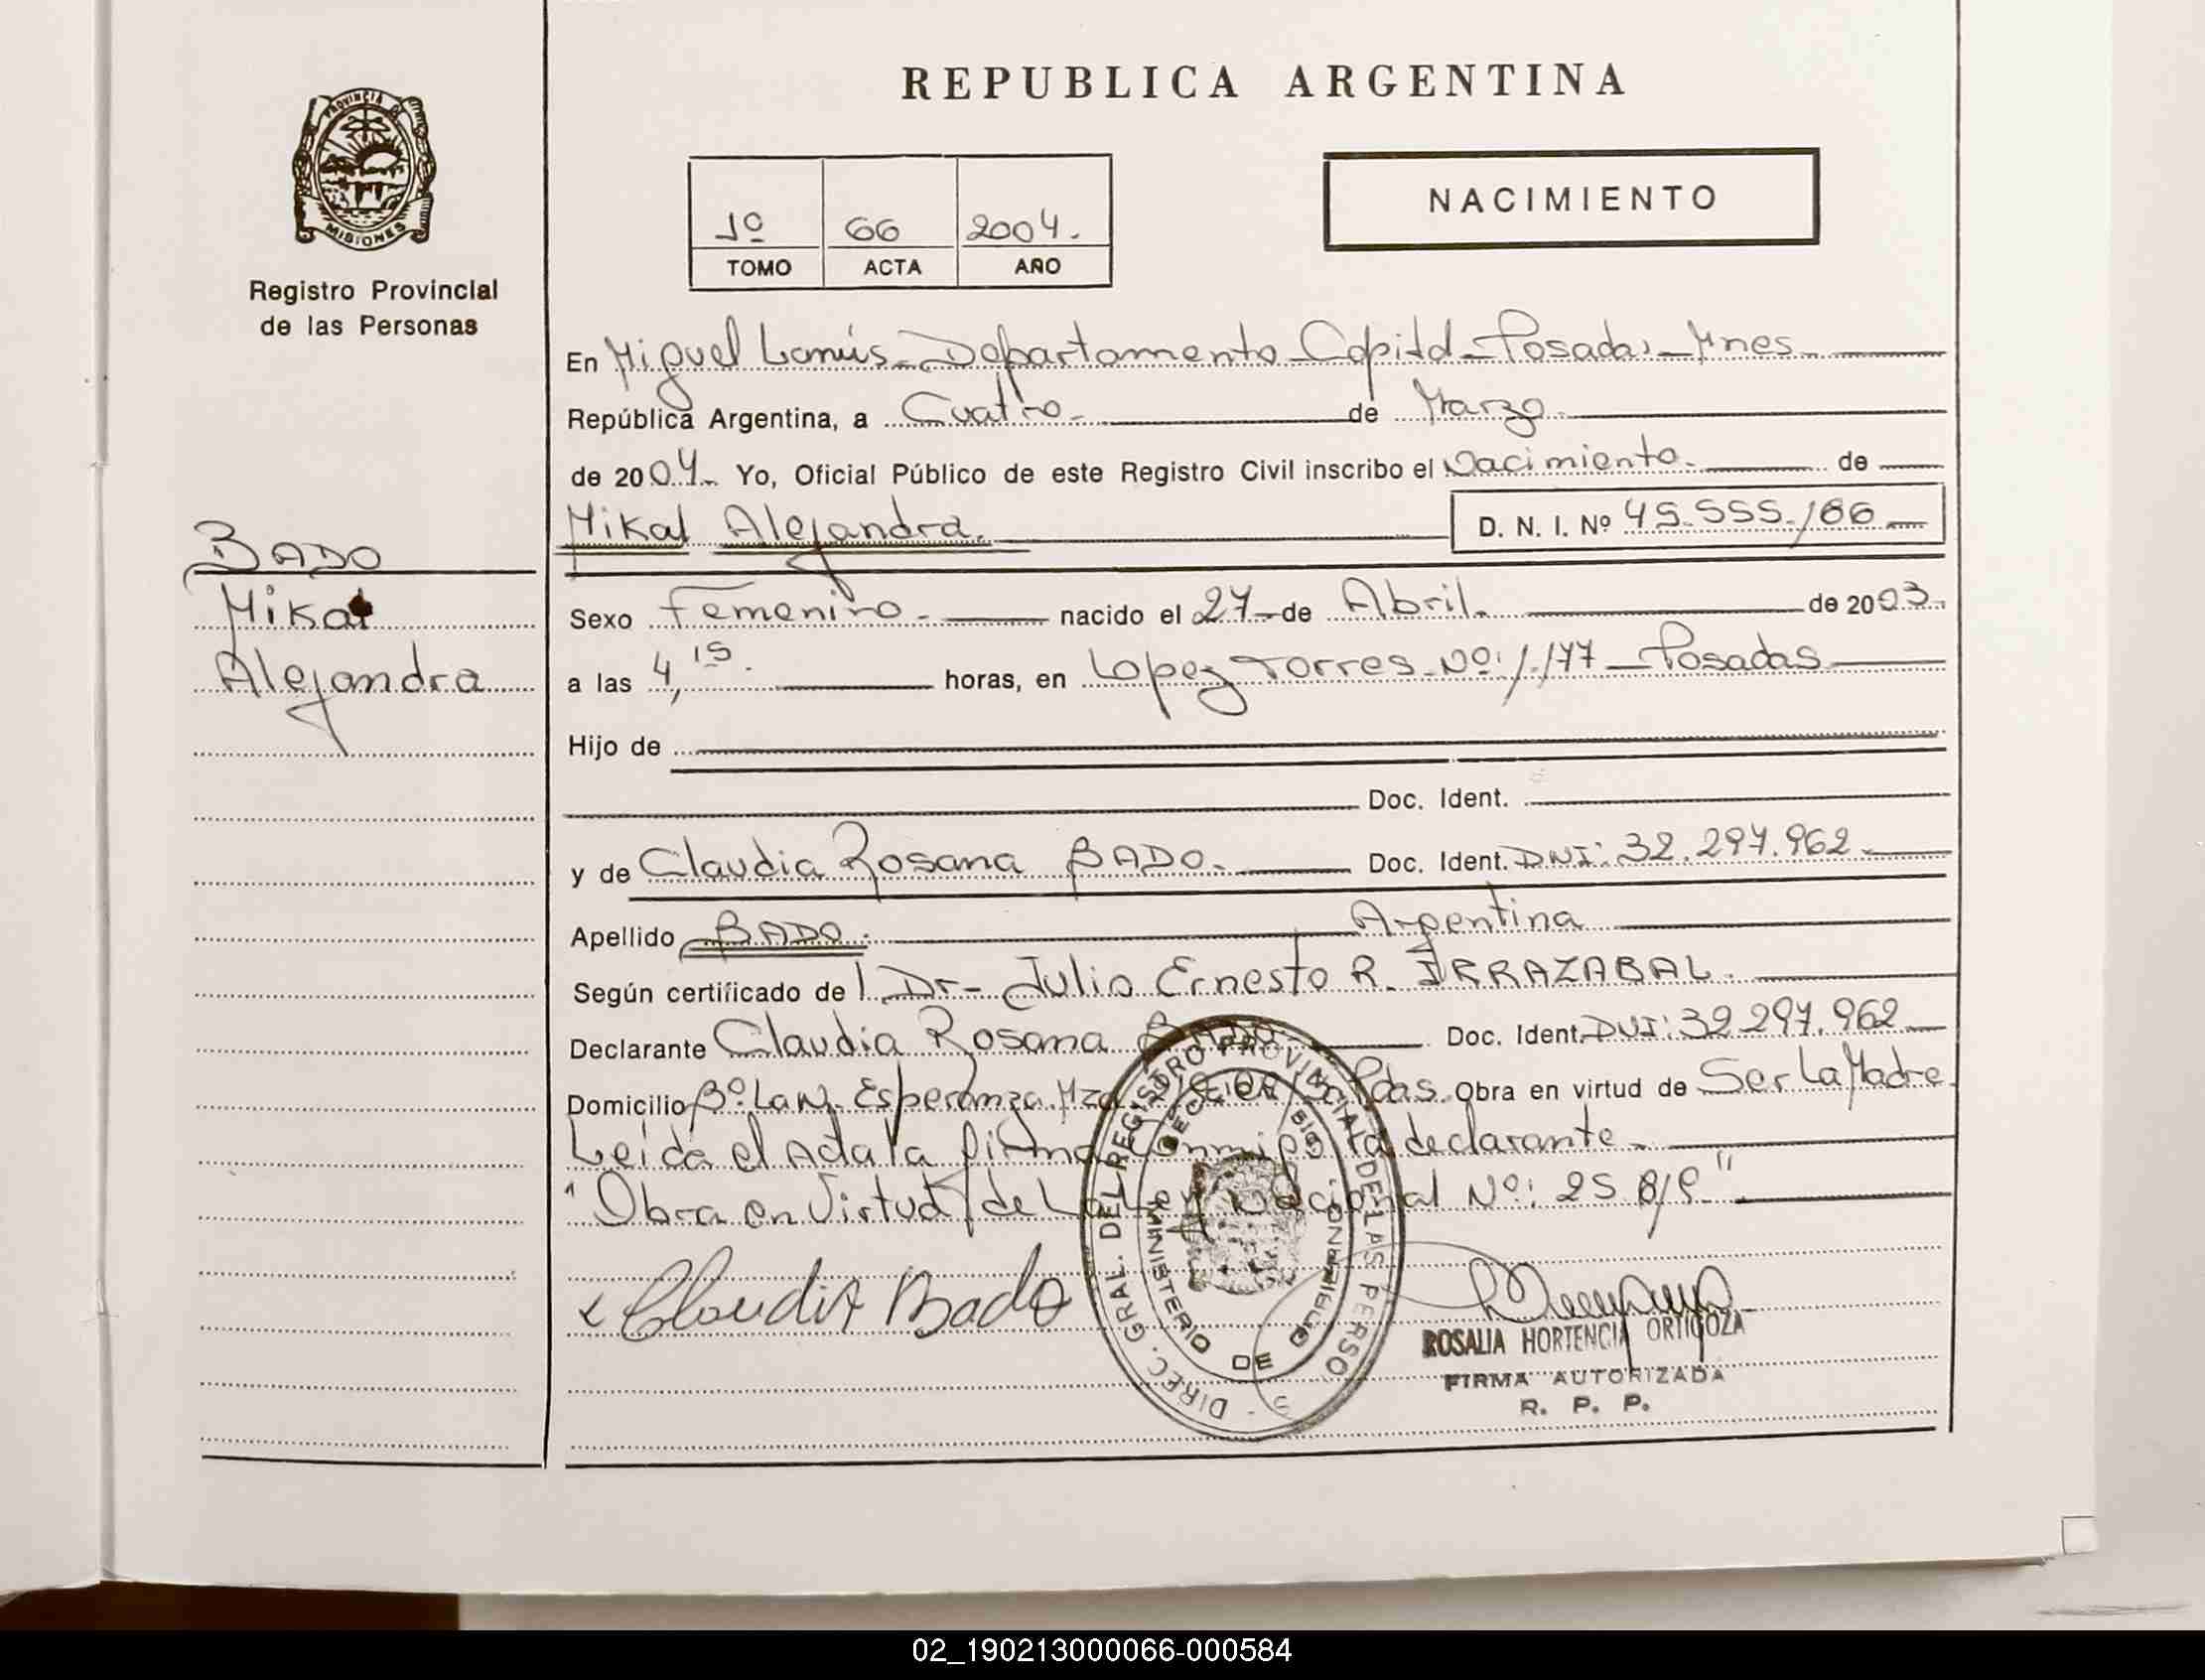 REPUBLICA ARGENTINA
PROVINCIA DE
MISIONES
Registro Provincial
de las Personas
1º 66 2004.
TOMO ACTA AÑO
NACIMIENTO
En Miguel Lanús - Departamento Capital - Posadas - Mnes
República Argentina, a Cuatro - de Marzo
de 2004. Yo, Oficial Público de este Registro Civil inscribo el Nacimiento - de
Mikal Alejandra. D. N. I. Nº 45.555.166
BADO
Mikal
Alejandra
Sexo Femenino - nacido el 27 - de Abril. de 2003.
a las 4,15. horas, en Lopez Torres Nº: 1.177 - Posadas
Hijo de
Doc. Ident.
y de Claudia Rosana BADO. Doc. Ident. DNI: 32.297.962
Apellido BADO. Argentina
Según certificado del Dr - Julio Ernesto R. IRRAZABAL.
Declarante Claudia Rosana BADO Doc. Ident. DNI: 32.297.962
Domicilio Bº. La N. Esperanza. Mza Pdas. Obra en virtud de Ser La Madre.
Leída el Acta la firma Conmigo la declarante.
"Obra en Virtud de La Ley Nacional Nº: 25.819"
Claudia Bado
DIREC. GRAL. DEL REGISTRO PROVINCIAL DE LAS PERSO
MINISTERIO DE GOBIERNO
ROSALIA HORTENCIA ORTIGOZA
FIRMA AUTORIZADA
R. P. P.
02_190213000066-000584